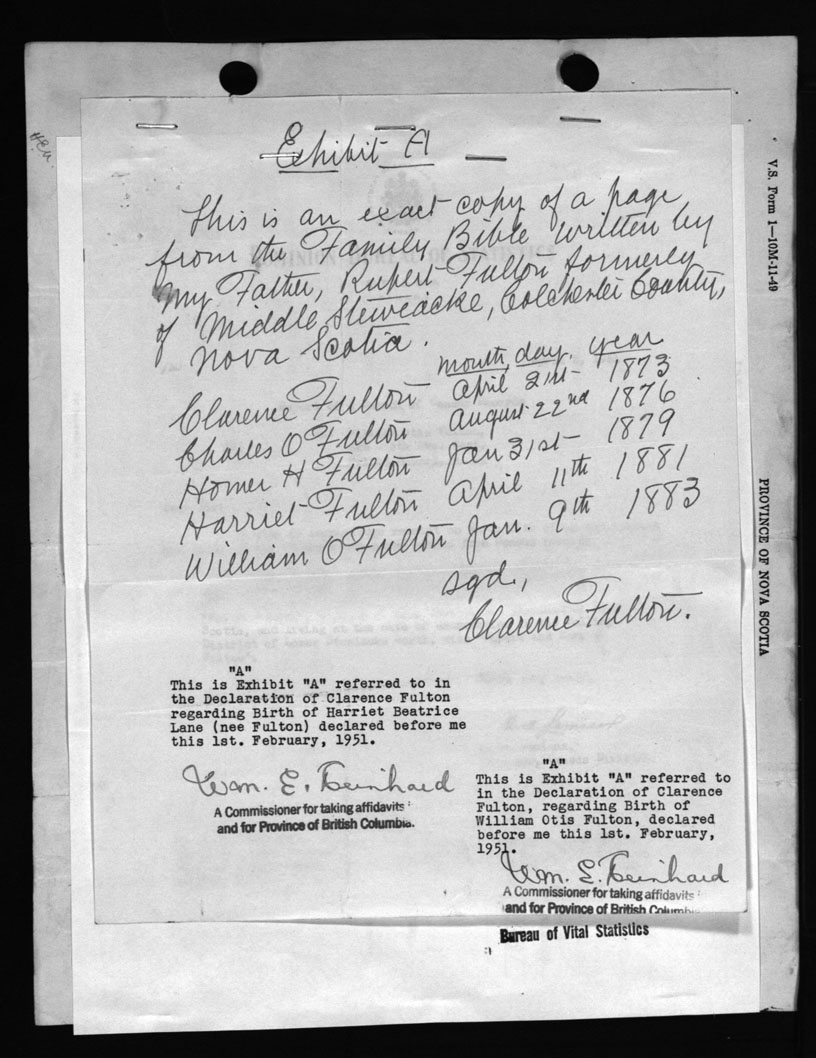 Exhibit A
This is an exact copy of a page
from the Family Bible written by
my Father, Rupert Fulton formerly
of Middle Stewiacke, Colchester County,
Nova Scotia.
month, day. year
Clarence Fulton April 21st 1873
Charles O Fulton August 22nd 1876
Homer H Fulton Jan 31st 1879
Harriet Fulton April 11th 1881
William O Fulton Jan. 9th 1883
sgd.,
Clarence Fulton.
"A"
This is Exhibit "A" referred to in
the Declaration of Clarence Fulton
regarding Birth of Harriet Beatrice
Lane (nee Fulton) declared before me
this 1st. February, 1951.
Wm. E.
A Commissioner for taking affidavits
and for Province of British Columbia.
"A"
This is Exhibit "A" referred to
in the Declaration of Clarence
Fulton, regarding Birth of
William Otis Fulton, declared
before me this 1st. February,
1951.
Wm. E.
A Commissioner for taking affidavits
and for Province of British Columbia
Bureau of Vital Statistics
V.S. Form 1—10M-11-49
PROVINCE OF NOVA SCOTIA